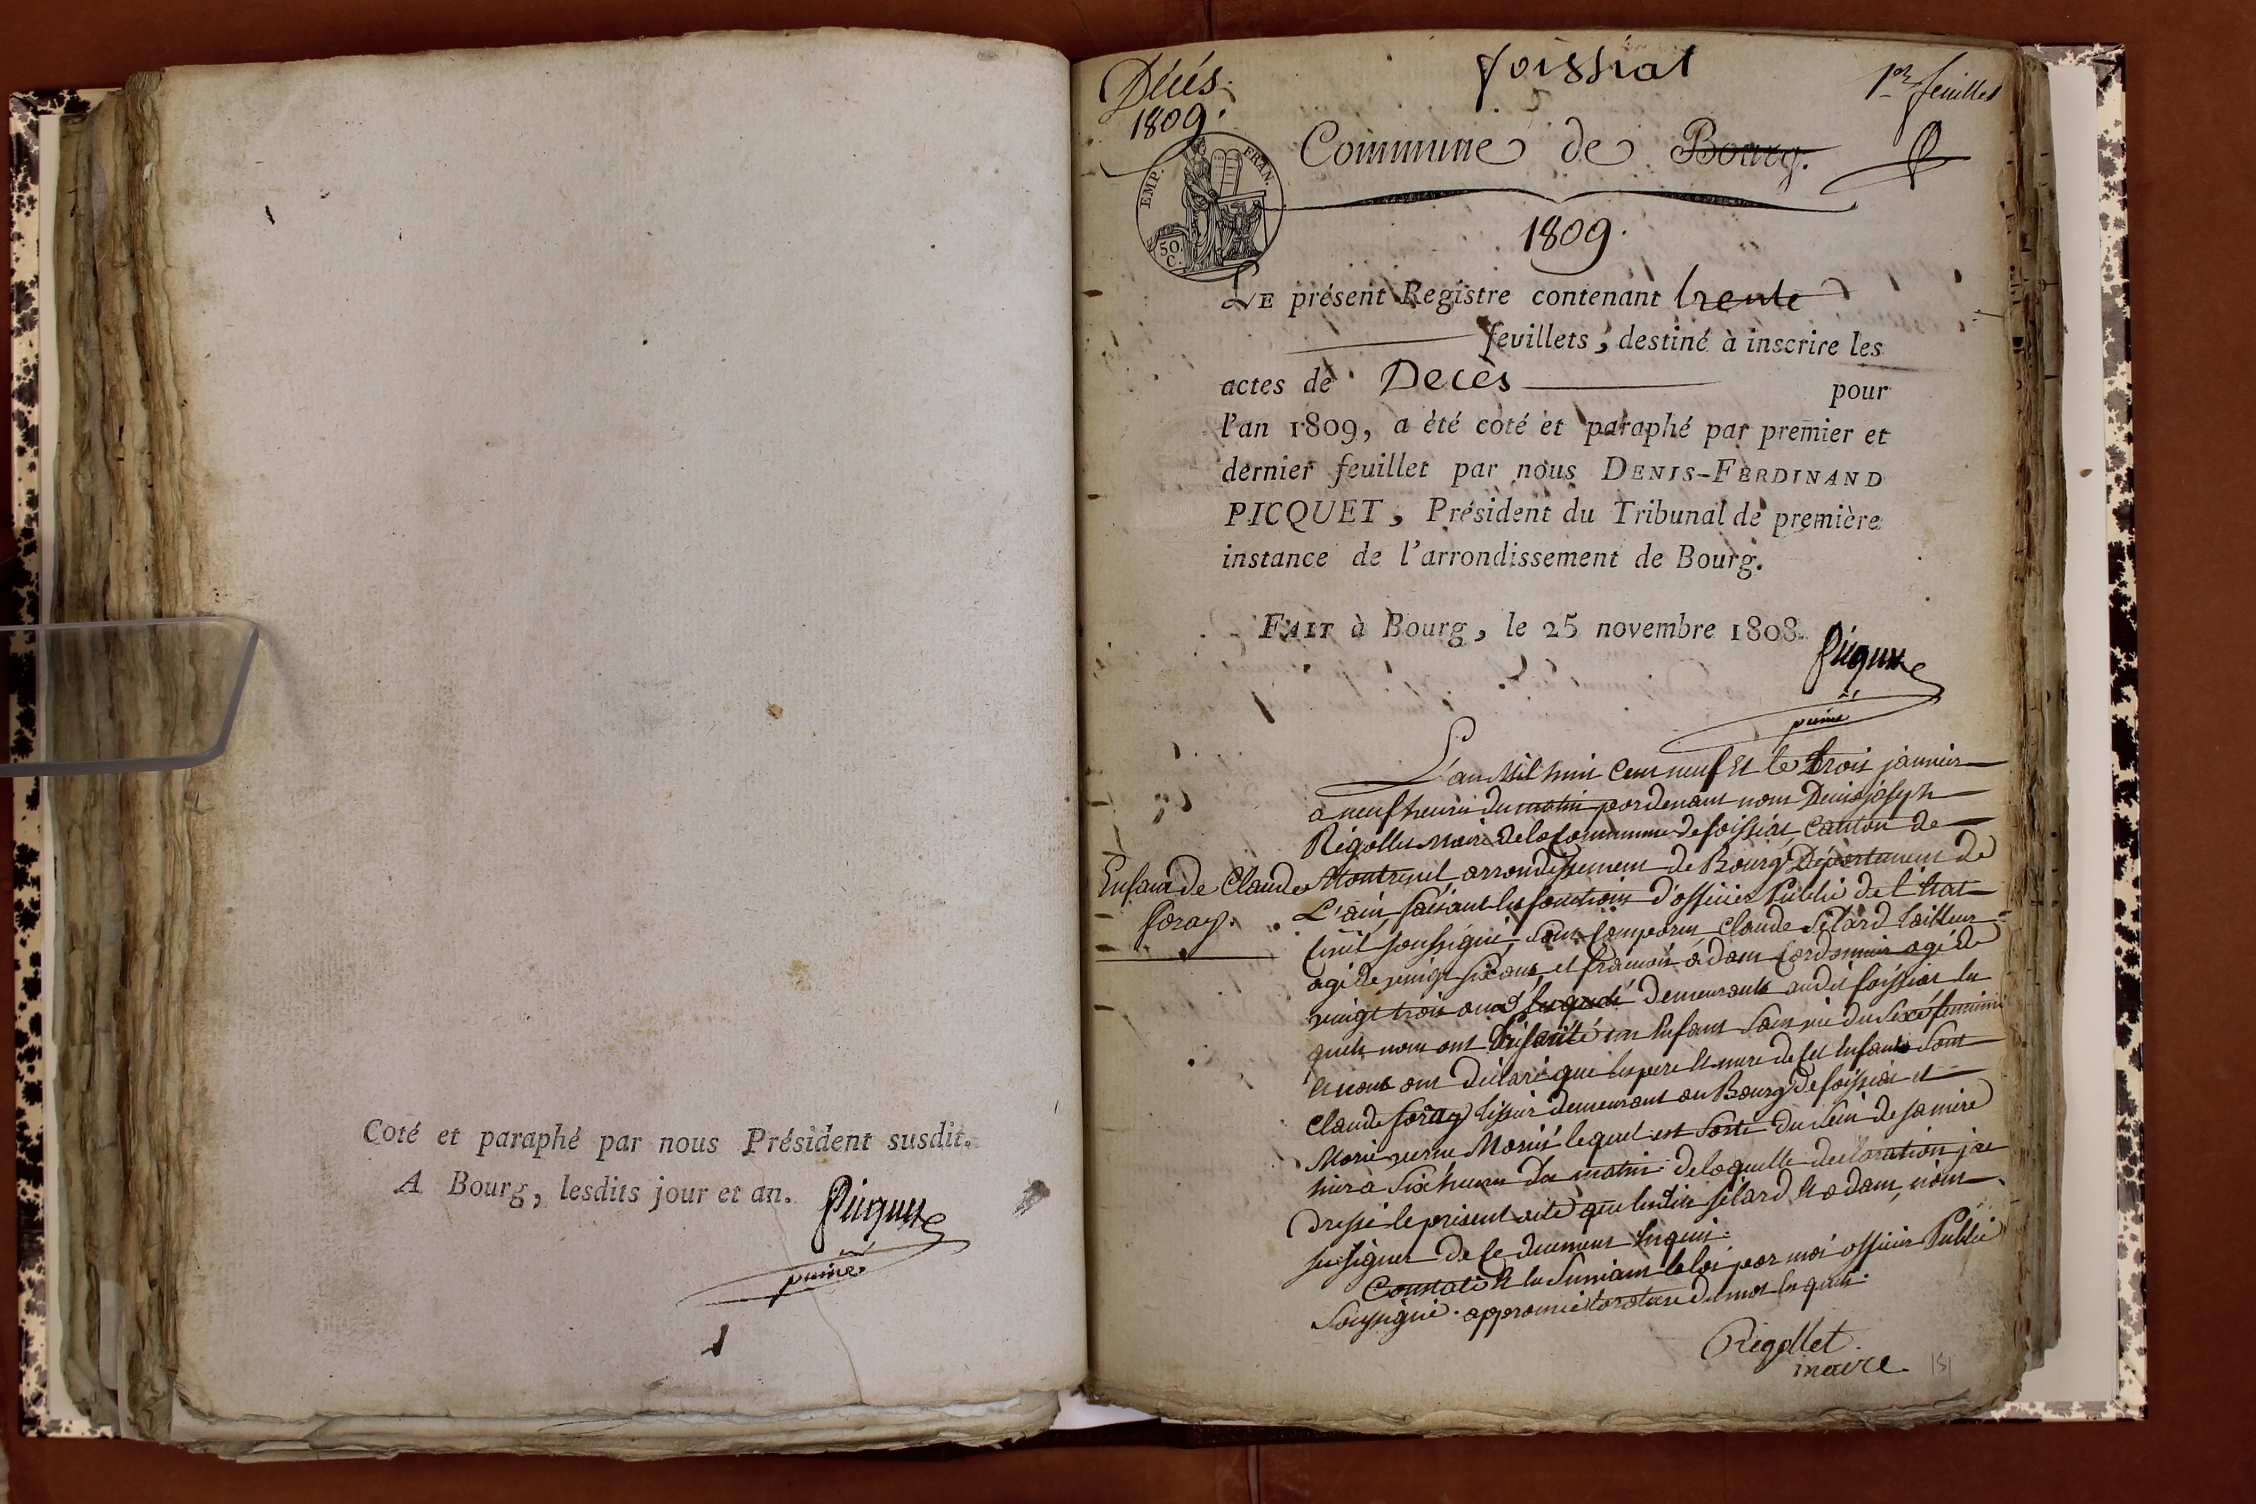 Coté et paraphé par nous Président susdit.
A Bourg, lesdits jour et an.
Picquet
puiné
Décés
1809.
foissiat
1er feuillet
EMP. FRAN.
50.
C.
Commune de Bourg.
1809.
LE présent Registre contenant trente
feuillets, destiné à inscrire les
actes de Decès pour
l'an 1809, a été coté et paraphé par premier et
dernier feuillet par nous DENIS-FERDINAND
PICQUET, Président du Tribunal de première
instance de l'arrondissement de Bourg.
FAIT à Bourg, le 25 novembre 1808.
Picquet
puiné
Enfant de Claude
foray.
L'an Mil huit Cent neuf Et le trois janvier
a neuf heures du matin pardevant nous Denis joseph
Rigollet Maire de la Commune de foissiat Canton de
Montrevel arrondissement de Bourg Département de
L'ain, faisant les fonctions d'officier Public de l'Etat
Civil soussigné, sont Comparus Claude Silard tailleur
agé de vingt six ans, et francois adam Cordonnier agé de
vingt trois ans lesquels demeurants audit foissiat les
quels nous ont présenté un Enfant sans vie du Sexe feminin
et nous ont déclaré que les pere Et mere de cet Enfant Sont
Claude foray tissier demeurant au Bourg de foissiat et
Marie verne Mariés lequel est Sorti du Sein de sa mere
hier a Six heures du matin de laquelle declaration j'ai
Dressé le présent acte que lesdits silard Et adam, n'ont
su signer de Ce duement Enquis.
Constaté Et lu Suivant la loi par moi officier Public
Soussigné. approuvé la rature du mot lesquels.
Rigollet
maire
151